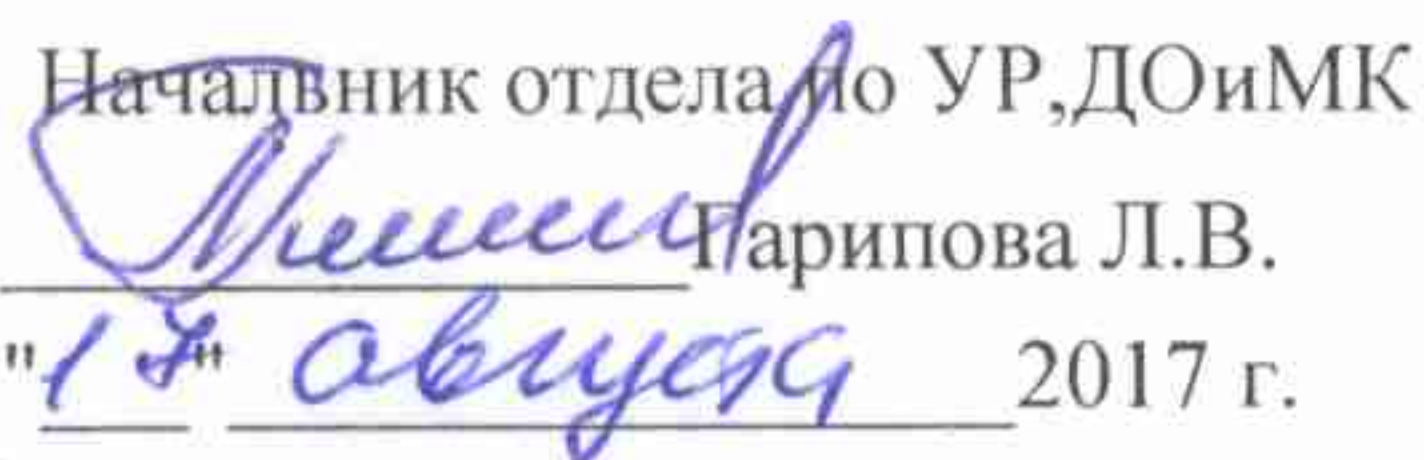 Начальник отдела по УР,ДОиМК
Гарипова Л.В.
"17" августа 2017 г.